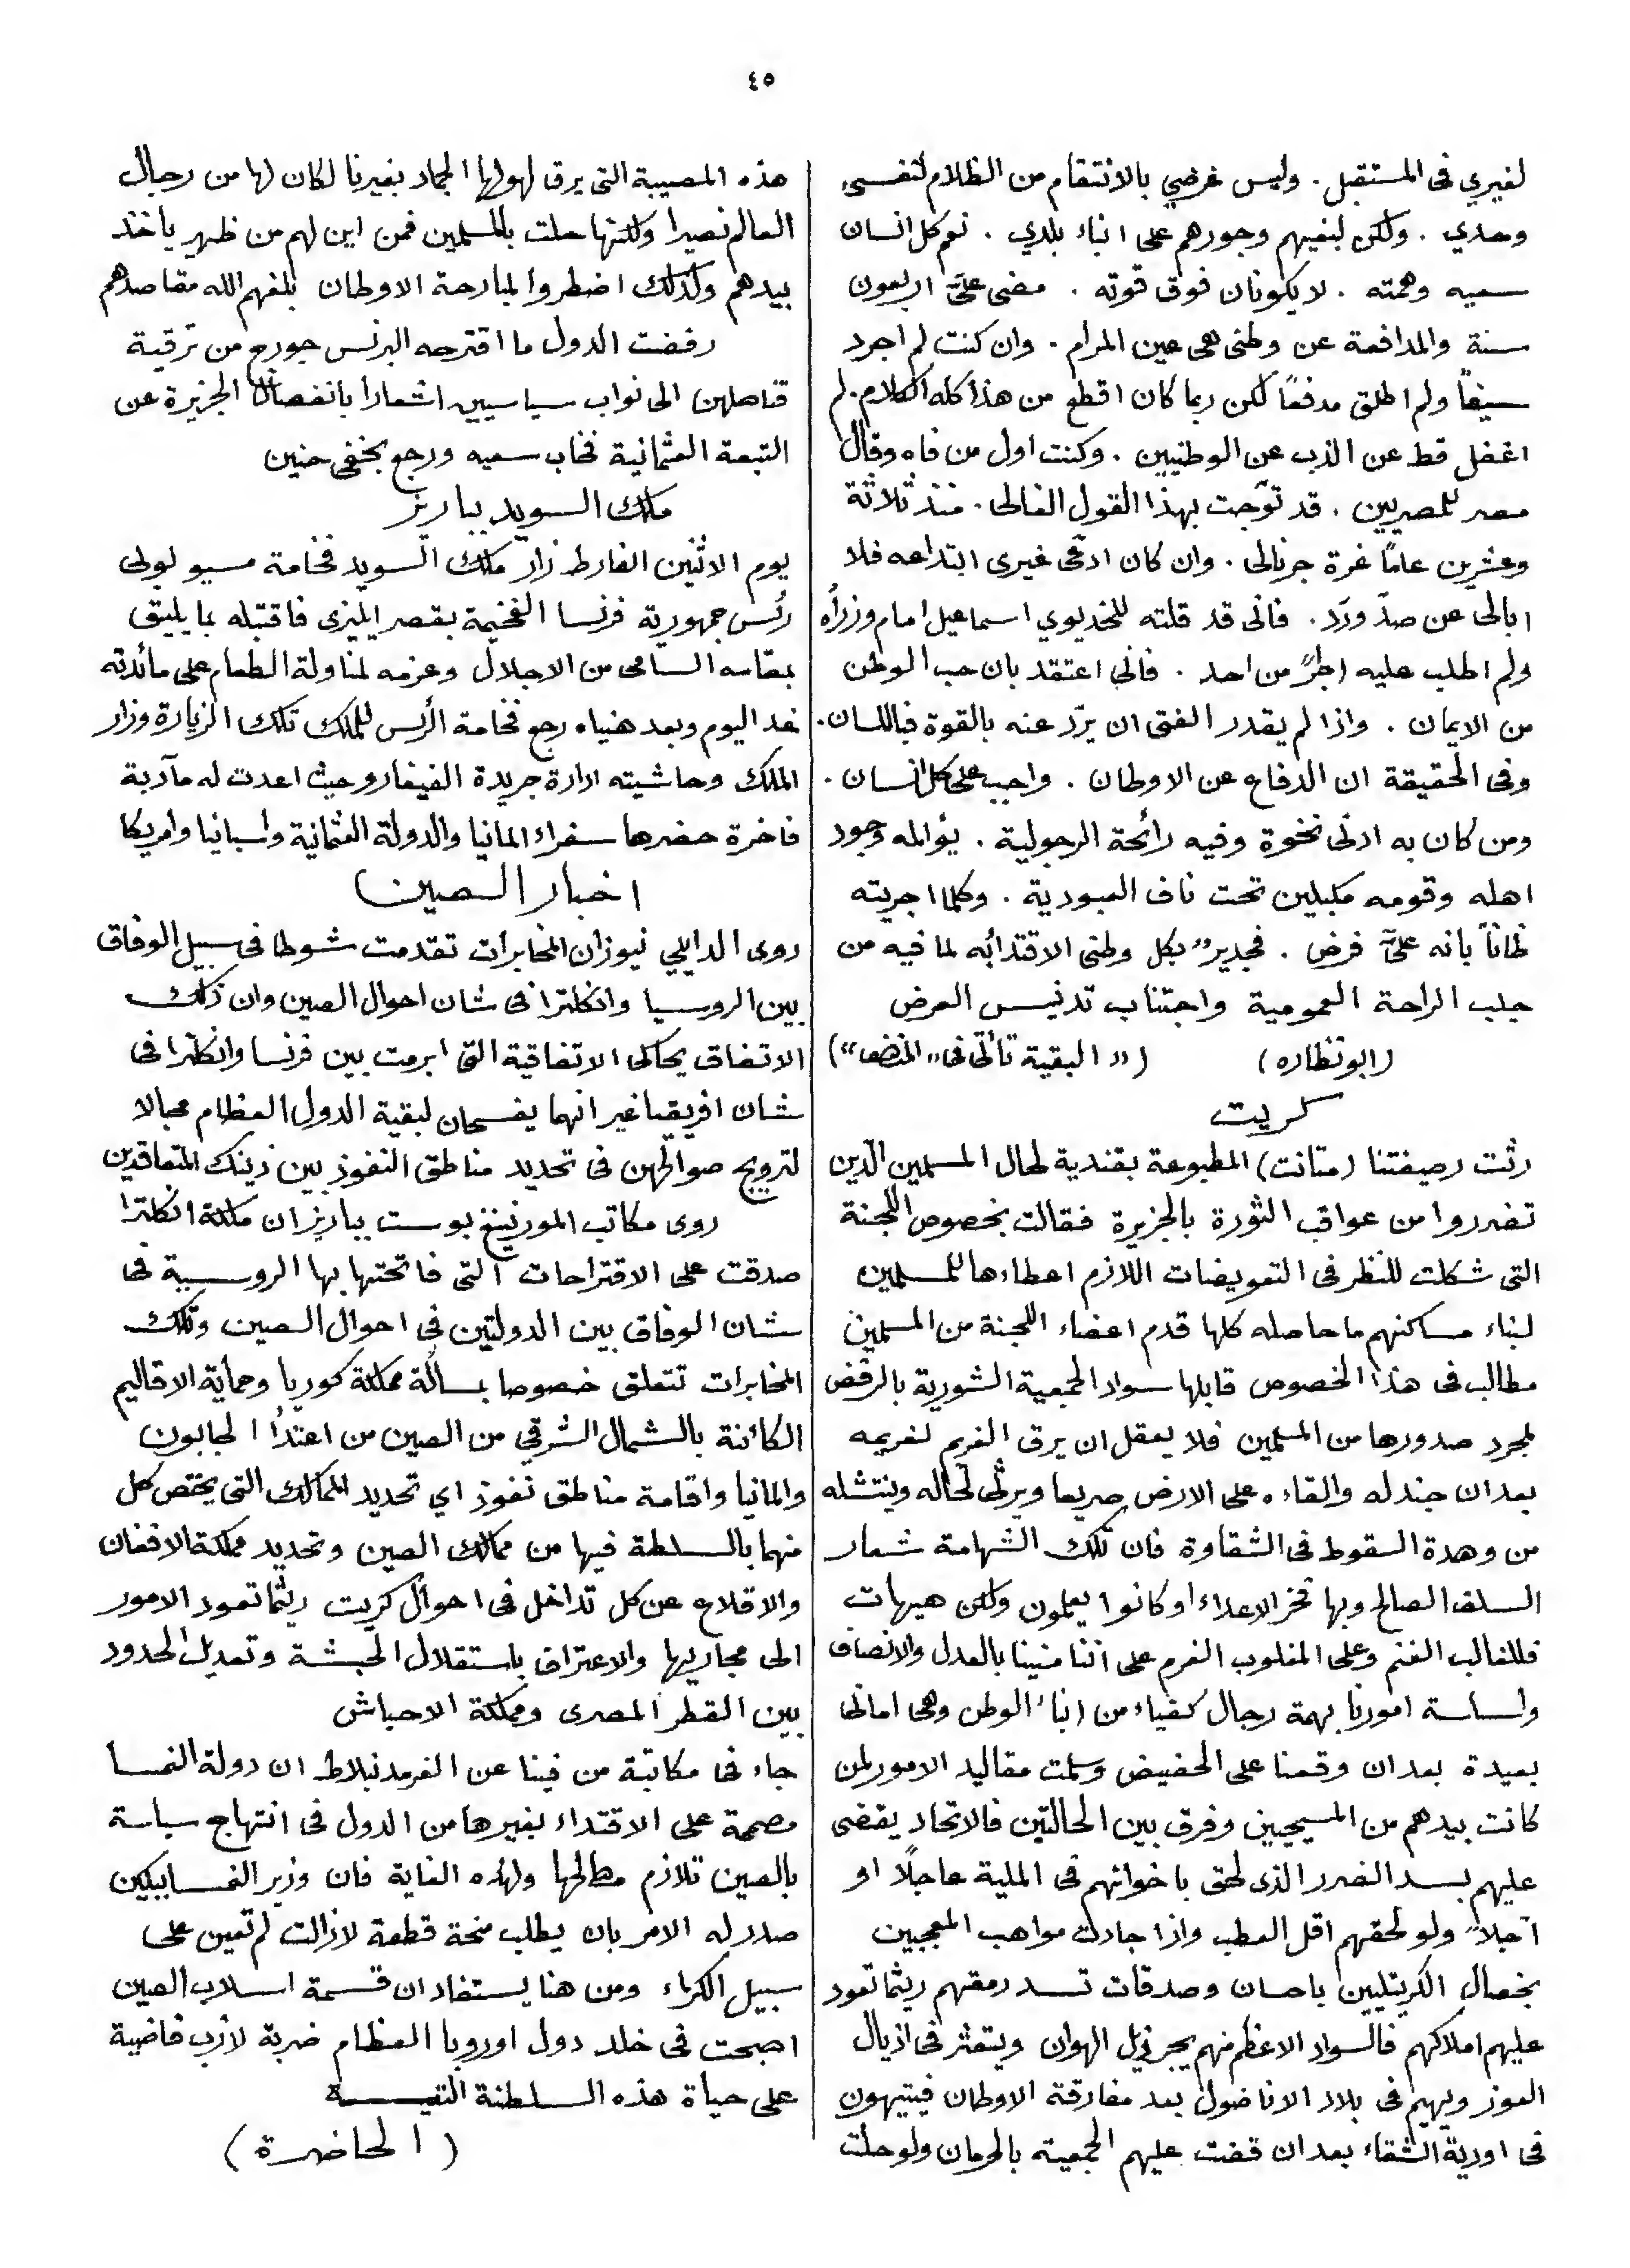 ٤٥
لغيري فى المستقبل . وليس غرضي بالانتقام من الظلام لنفسى
وحدي . ولكن لبغيهم وجورهم على ابناء بلدي . نعم كل انسان
سعيه وهمته . لا يكونان فوق قوته . مضى علىَّ اربعون
سنة والمدافعة عن وطنى هى عين المرام . وان كنت لم اجرد
سيفاً ولم اطلق مدفعاً لكن ربما كان اقطع من هذا كله الكلام . لم
اغفل قط عن الذب عن الوطنيين . وكنت اول من فاه وقال
مصر للمصريين . قد توّجت بهذا القول الغالى . منذ ثلاثة
وعشرين عاماً غرة جرنالى . وان كان ادّعى غيرى ابتداعه فلا
ابالى عن صدّ وردّ . فانى قد قلته للخديوي اسماعيل امام وزرأه
ولم اطلب عليه اجرًا من احد . فانى اعتقد بان حب الوطن
من الايمان . واذا لم يقدر الفتى ان يردّ عنه بالقوة فباللسان .
وفى الحقيقة ان الدفاع عن الاوطان . واجب على كل انسان .
ومن كان به ادنى نخوة وفيه رائحة الرجولية . يؤالمه وجود
اهله وقومه مكبلين تحت ناف العبودية . وكلما اجريته
ظاناً بانه علىَّ فرض . فجدير بكل وطنى الاقتدأبه لما فيه من
جلب الراحة العمومية واجتناب تدنيس العرض
(ابونظاره) („ البقية تأتى فى „ المنصف “)
كريت
رثت رصيفتنا (متانت) المطبوعة بقندية لحال المسلمين الذين
تضرروا من عواقب الثورة بالجزيرة فقالت بخصوص اللجنة
التى شكلت للنظر فى التعويضات اللازم اعطاءها للمسلمين
لبناء مساكنهم ما حاصله كلها قدم اعضاء اللجنة من المسلمين
مطالب فى هذا الخصوص قابلها سواد الجمعية الشورية بالرفض
لمجرد صدورها من المسلمين فلا يعقل ان يرق الغريم لغريمه
بعد ان جندله والقاءه على الارض صريعا ويرثى لحاله وينتشله
من وهدة السقوط فى الشقاوة فان تلك الشهامة شعار
السلف الصالح وبها فخر الاعداء لو كانوا يعلمون ولكن هيهات
فللغالب الغنم وعلى المغلوب الغرم على اننا منينا بالعدل والانصاف
ولسياسة امورنا بهمة رجال كفياء من ابناء الوطن وهى امانى
بعيدة بعد ان وقعنا على الحضيض وسلمت مقاليد الامور لمن
كانت بيدهم من المسيحيين وفرق بين الحالتين فالاتحاد يقضى
عليهم بسد الضرر الذى لحق باخوانهم فى الملية عاجلاً او
آجلاً ولو لحقهم اقل العطب واذا جادت مواهب المعجبين
بخصال الكريتليين باحسان وصدقات تسد رمقهم ريثما تعود
عليهم املاكهم فالسواد الاعظم منهم يجر ذيل الهوان ويتعثر فى اذيال
العوز ويهيم فى بلاد الاناضول بعد مفارقة الاوطان فيتيهون
فى اودية الشقاء بعد ان قضت عليهم الجمعية بالحرمان ولو حلت
هذه المصيبة التى يرق لهولها الجماد بغيرنا لكان لها من رجال
العالم نصيرا ولكنها حلت بالمسلمين فمن اين لهم من ظهير يأخذ
بيدهم ولذلك اضطروا لمبارحة الاوطان بلغهم الله مقاصدهم
رفضت الدول ما اقترحه البرنس جورج من ترقية
قناصلهن الى نواب سياسيين اشعارا بانفصال الجزيرة عن
التبعة العثمانية فخاب سعيه ورجع بخفى حنين
ملك السويد بباريز
يوم الاثنين الفارط زار ملك السويد فخامة مسيو لوبى
رئس جمهورية فرنسا الفخيمة بقصر اليزى فاقتبله بما يليق
بمقامه السامى من الاجلال وعزمه لمناولة الطعام على مائدته
غد اليوم وبعد هنياه رجع فخامة الرئس للملك تلك الزيارة وزار
الملك وحاشيته ادارة جريدة الفيغارو حيث اعدت له مآدبة
فاخرة حضرها سفراء المانيا والدولة العثمانية واسبانيا وامريكا
اخبار الصين
روى الدايلي نيوز ان المخابرات تقدمت شوطا فى سبيل الوفاق
بين الروسيا وانكلترا فى شان احوال الصين وان ذلك
الاتفاق يحاكى الاتفاقية التى ابرمت بين فرنسا وانكلترا فى
شان افريقيا غير انهما يفسحان لبقية الدول العظام مجالا
لترويج صوالحهن فى تحديد مناطق النفوذ بين ذينك المتعاقدين
روى مكاتب المورنينغ بوست بباريز ان ملكة انكلترا
صدقت على الاقتراحات التى فاتحتها بها الروسية فى
شان الوفاق بين الدولتين فى احوال الصين وتلك
المخابرات تتعلق خصوصا بمسألة مملكة كوريا وحمأية الاقاليم
الكائنة بالشمال الشرقي من الصين من اعتدأ الجابون
والمانيا واقامة مناطق نفوذ اي تحديد الممالك التى يختص كل
منهما بالسلطة فيها من ممالك الصين وتحديد مملكة الافغان
والاقلاع عن كل تداخل فى احوال كريت ريثما تعود الامور
الى مجاريها والاعتراف باستقلال الحبشة وتعديل الحدود
بين القطر المصرى ومملكة الاحباش
جاء فى مكاتبة من فينا عن الفرمدنبلاط ان دولة النمسا
مصممة على الاقتداء بغيرها من الدول فى انتهاج سياسة
بالصين تلازم مصالحها ولهذه الغاية فان وزير النمسا ببيكين
صدر له الامر بان يطلب منحة قطعة لازالت لم تعين على
سبيل الكراء ومن هنا يستفاد ان قسمة اسلاب الصين
اصبحت فى خلد دول اوروبا العظام ضربة لازب قاضية
على حياة هذه السلطنة التعيسة
(الحاضرة)